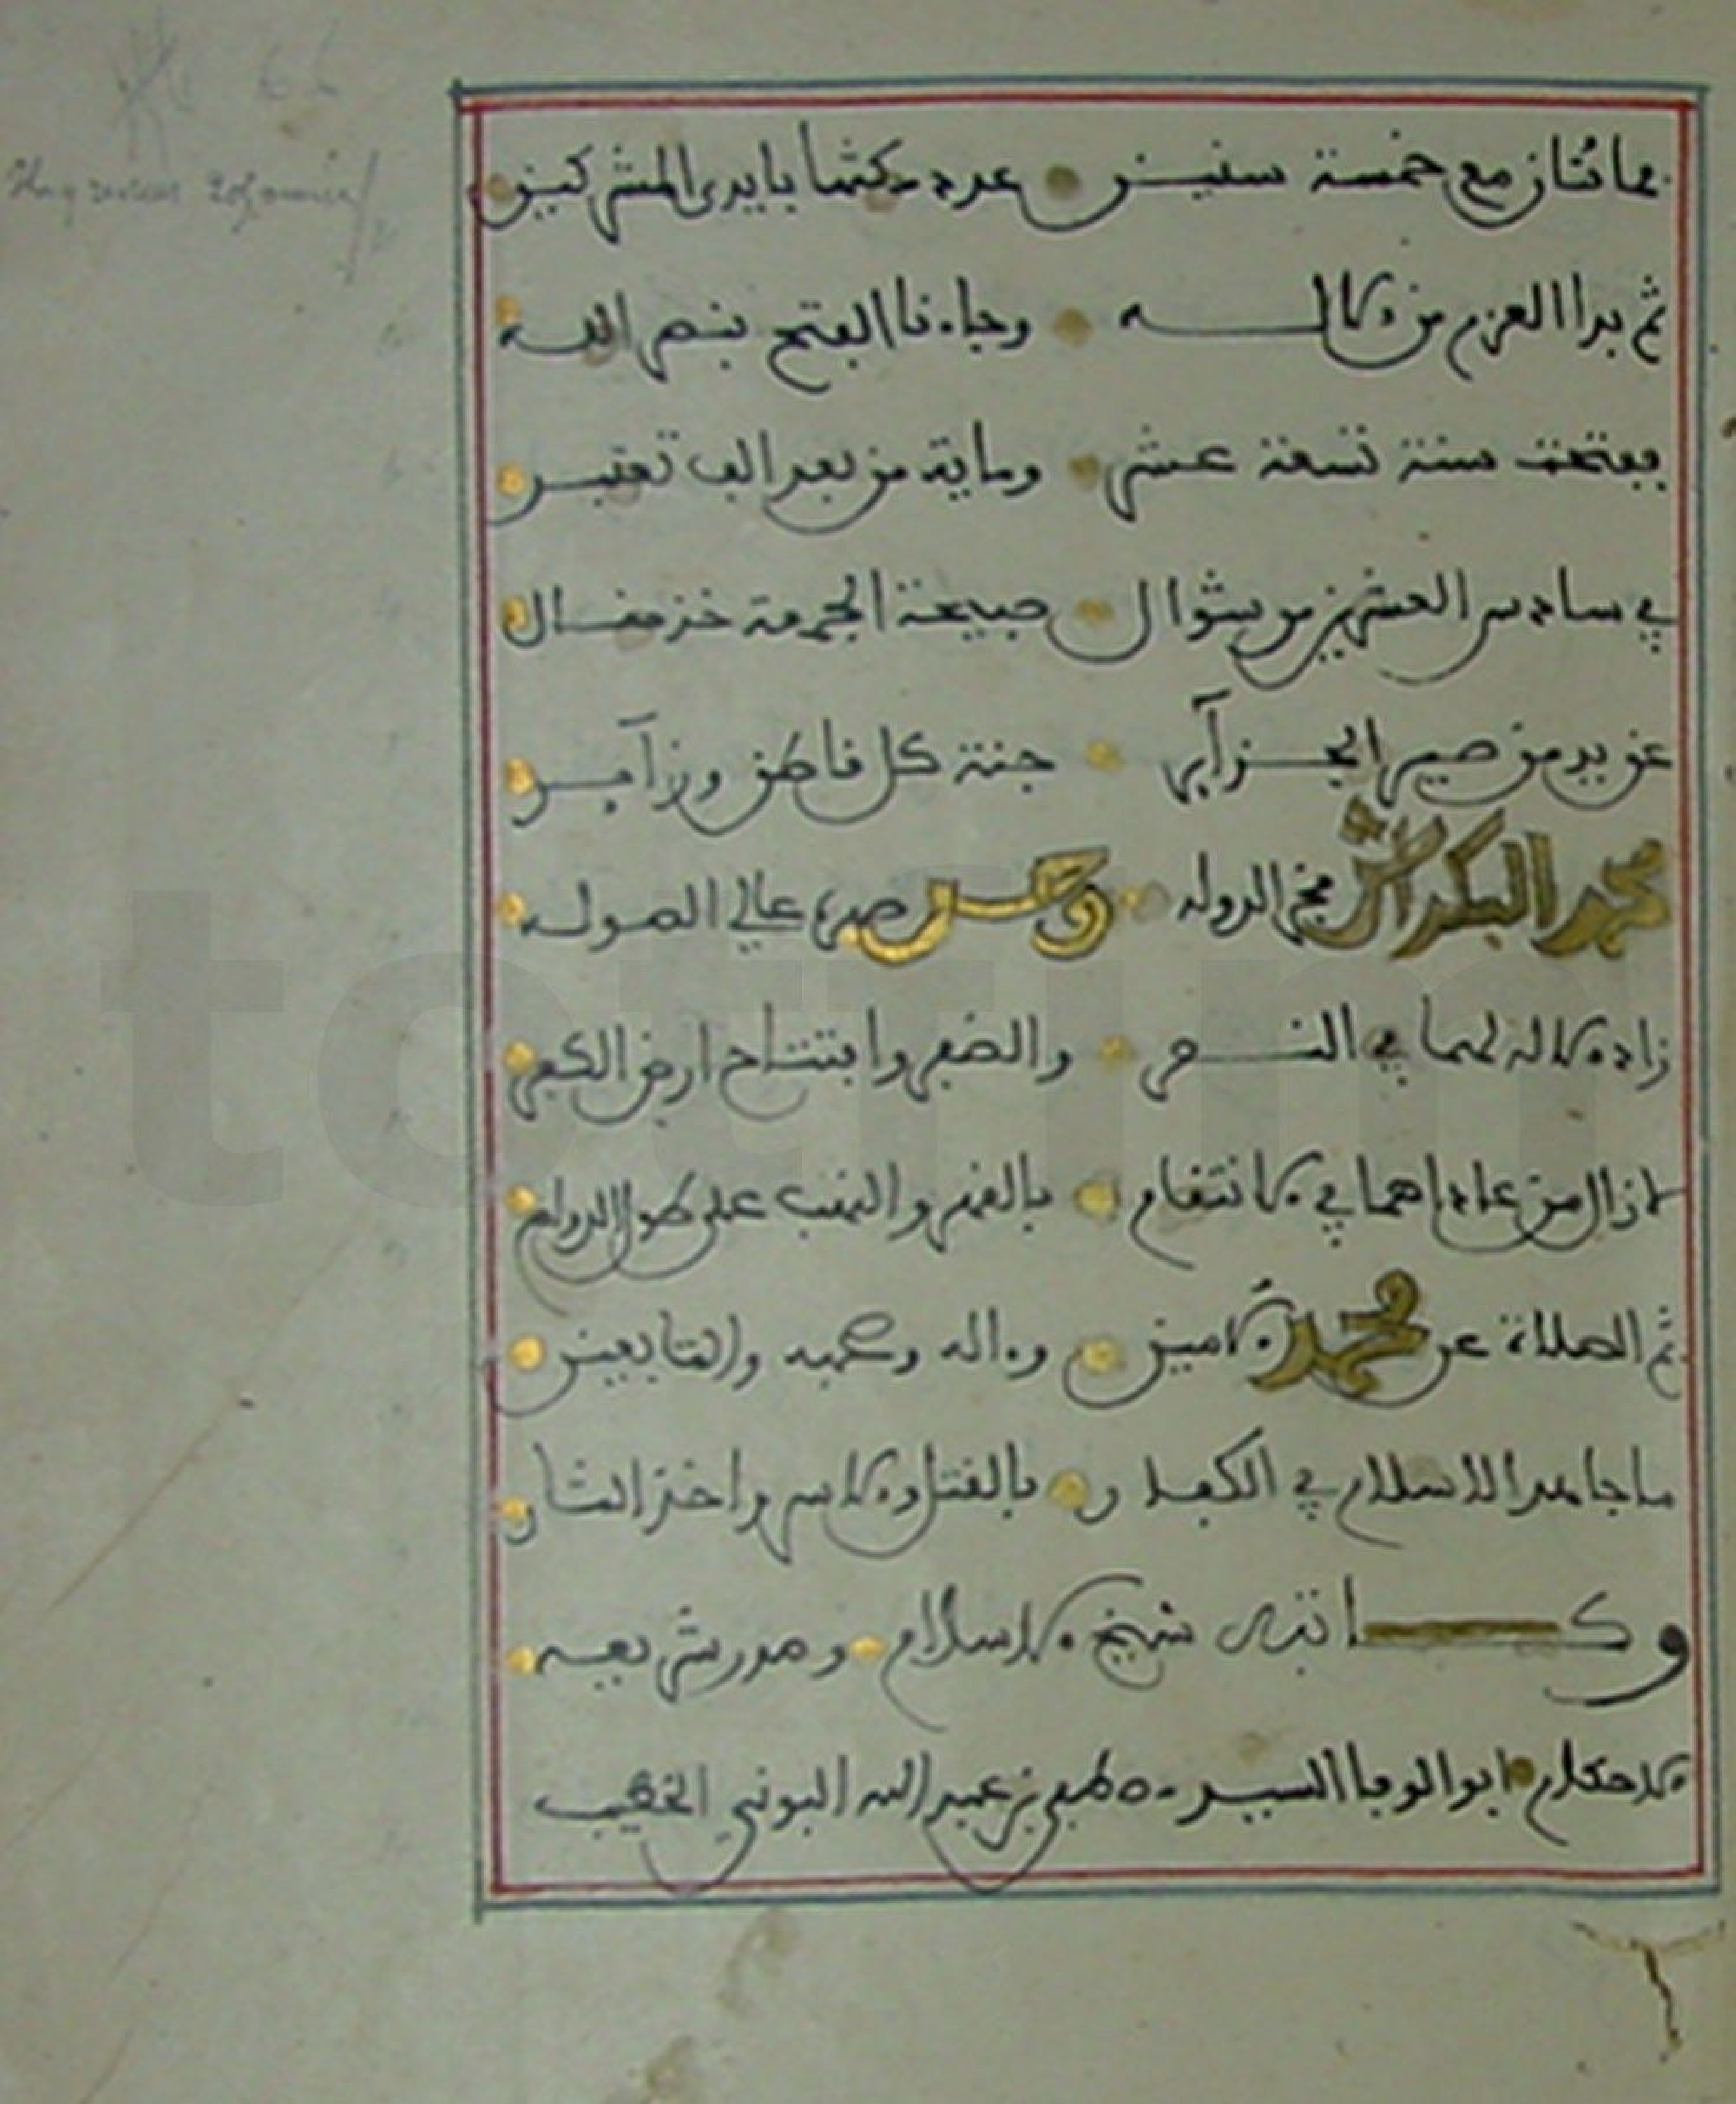 مائتان مع خمسة سنين عدد مكثها بايدى المشركين
ثم بدا العزم من الاله وجاءنا الفتح بنصر الله
ففتحت سنة تسعة عشر ومايه من بعد الف تعتبر
في سادس العشرين من شوال صبيحة الجمعة خذ مقال
عن يد من صير الجزآير جنة كل قاطن وزآير
محمد البكداش فخر الدوله وحسن صهر عالي الصوله
زاد الاله لهما في النصر والظفر وافتتاح ارض الكفر
لا زال من عاداهما في الانتقام بالقهر والنهب على طول الدوام
ثم الصلاة عن محمد الامين وءاله وصحبه والتابعين
ما جاهد الاسلام في الكفار بالقتل والاسر واخذ الثار
وكاتبنى شيخ الاسلام وصدر شريعة
الاحكام ابو الوفا السيد مصطفى بن عبد الله البونى الخطيب
to